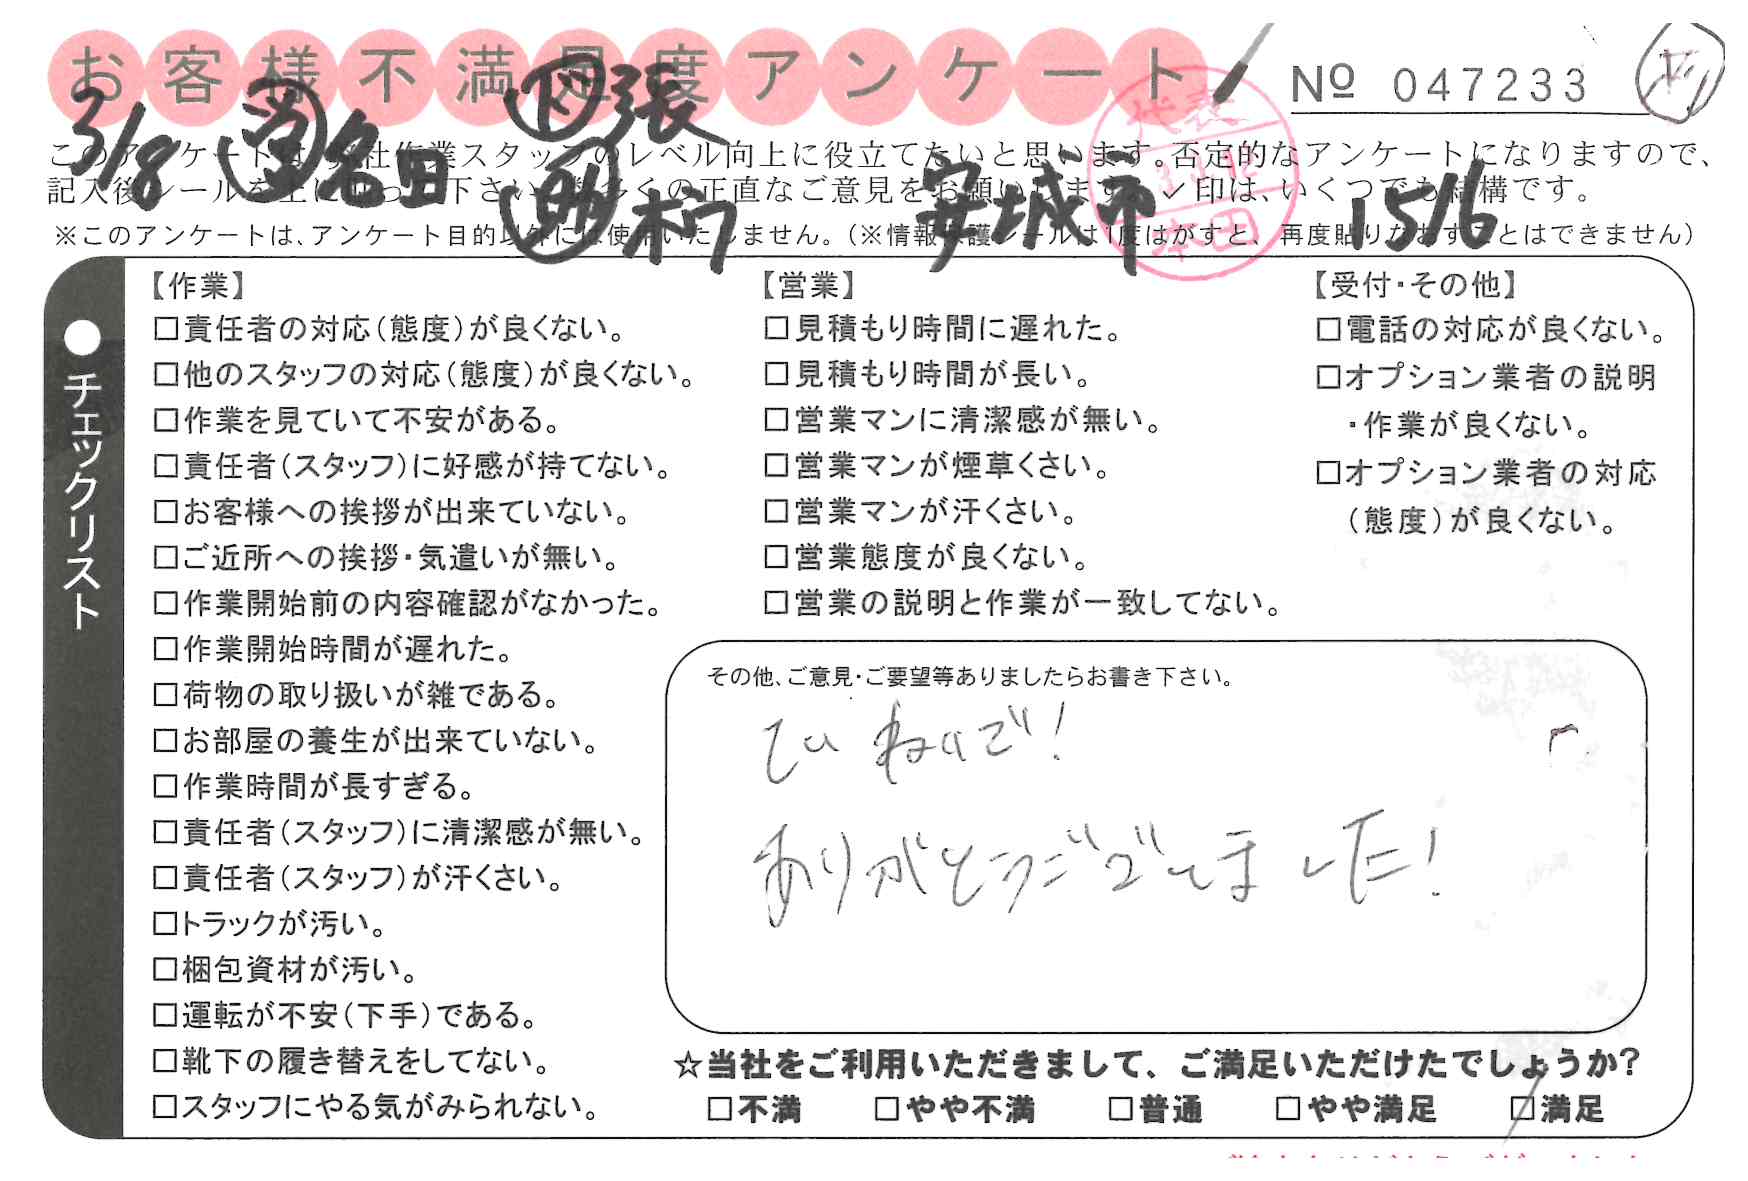 お客様不満足度アンケート
№ 047233
3/8 名田 下張
安城市 1516
このアンケートは、弊社作業スタッフのレベル向上に役立てたいと思います。否定的なアンケートになりますので、
記入後シールを上に貼って下さい。数多くの正直なご意見をお願いします。✓印は、いくつでも結構です。
※このアンケートは、アンケート目的以外には使用いたしません。（※情報保護シールは1度はがすと、再度貼りなおすことはできません）
代表
本田
●チェックリスト
【作業】
□責任者の対応（態度）が良くない。
□他のスタッフの対応（態度）が良くない。
□作業を見ていて不安がある。
□責任者（スタッフ）に好感が持てない。
□お客様への挨拶が出来ていない。
□ご近所への挨拶・気遣いが無い。
□作業開始前の内容確認がなかった。
□作業開始時間が遅れた。
□荷物の取り扱いが雑である。
□お部屋の養生が出来ていない。
□作業時間が長すぎる。
□責任者（スタッフ）に清潔感が無い。
□責任者（スタッフ）が汗くさい。
□トラックが汚い。
□梱包資材が汚い。
□運転が不安（下手）である。
□靴下の履き替えをしてない。
□スタッフにやる気がみられない。
【営業】
□見積もり時間に遅れた。
□見積もり時間が長い。
□営業マンに清潔感が無い。
□営業マンが煙草くさい。
□営業マンが汗くさい。
□営業態度が良くない。
□営業の説明と作業が一致してない。
【受付・その他】
□電話の対応が良くない。
□オプション業者の説明
・作業が良くない。
□オプション業者の対応
（態度）が良くない。
その他、ご意見・ご要望等ありましたらお書き下さい。
ていねいで！
ありがとうございました！
☆当社をご利用いただきまして、ご満足いただけたでしょうか？
□不満 □やや不満 □普通 □やや満足 □満足